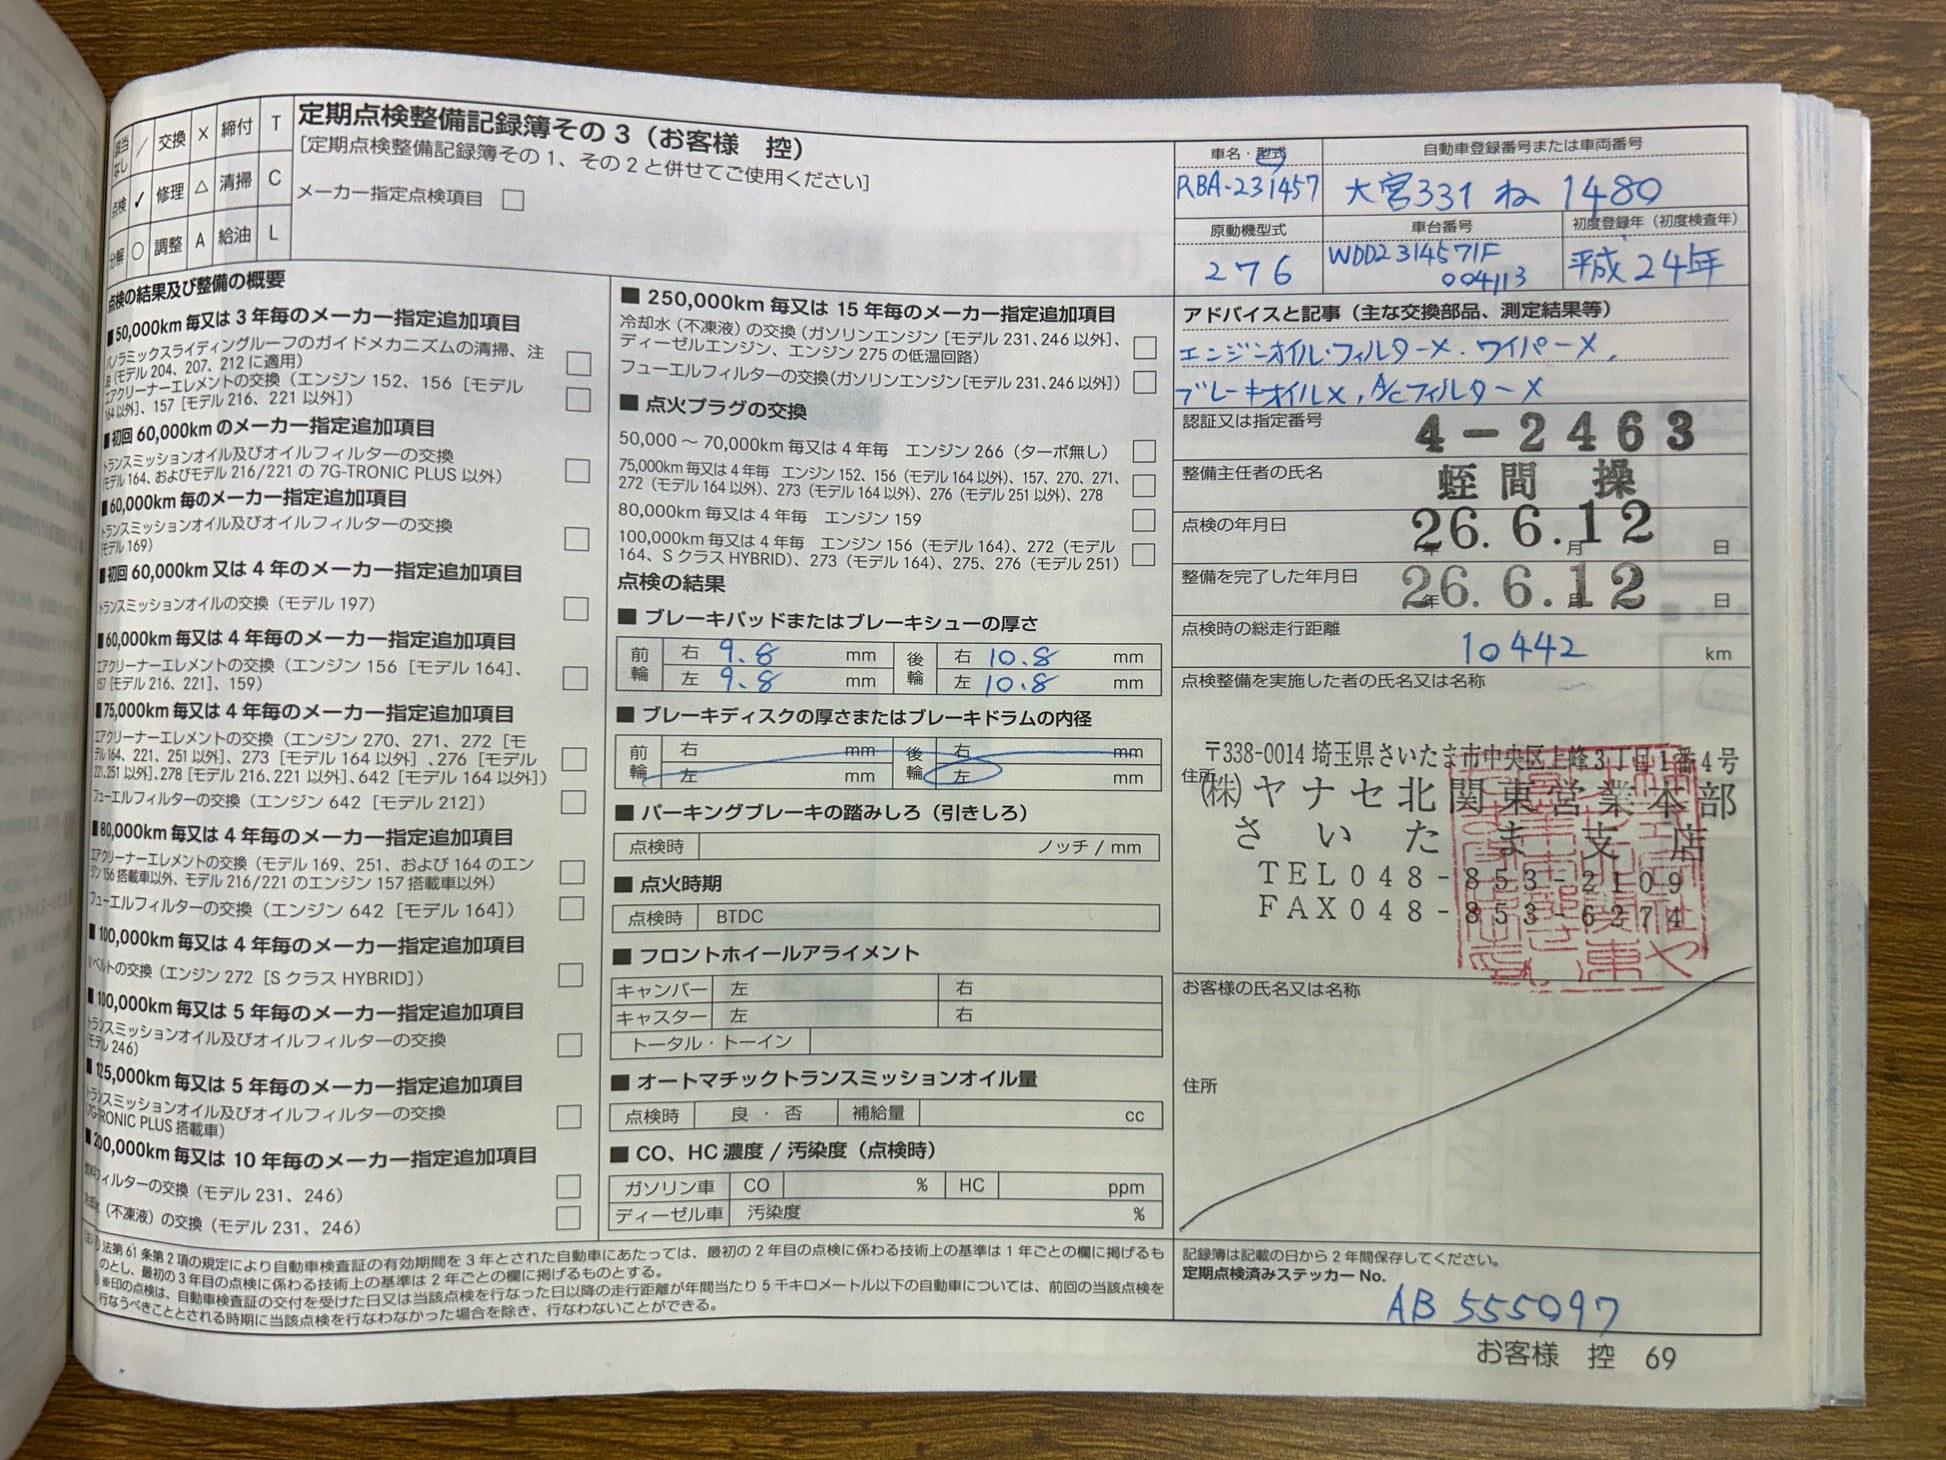 該当なし ／ 交換 × 締付 T
点検 ✓ 修理 △ 清掃 C
分解 ○ 調整 A 給油 L
定期点検整備記録簿その 3（お客様　控）
[定期点検整備記録簿その 1、その 2 と併せてご使用ください]
メーカー指定点検項目 □
点検の結果及び整備の概要
■50,000km 毎又は 3 年毎のメーカー指定追加項目
パノラミックスライディングルーフのガイドメカニズムの清掃、注
油（モデル 204、207、212 に適用） □
エアクリーナーエレメントの交換（エンジン 152、156［モデル
164 以外］、157［モデル 216、221 以外］） □
■初回 60,000km のメーカー指定追加項目
トランスミッションオイル及びオイルフィルターの交換
（モデル 164、およびモデル 216/221 の 7G-TRONIC PLUS 以外） □
■60,000km 毎のメーカー指定追加項目
トランスミッションオイル及びオイルフィルターの交換
（モデル 169） □
■初回 60,000km 又は 4 年のメーカー指定追加項目
トランスミッションオイルの交換（モデル 197） □
■60,000km 毎又は 4 年毎のメーカー指定追加項目
エアクリーナーエレメントの交換（エンジン 156［モデル 164］、
157［モデル 216、221］、159） □
■75,000km 毎又は 4 年毎のメーカー指定追加項目
エアクリーナーエレメントの交換（エンジン 270、271、272［モ
デル 164、221、251 以外］、273［モデル 164 以外］、276［モデル
221、251 以外］、278［モデル 216、221 以外］、642［モデル 164 以外］） □
フューエルフィルターの交換（エンジン 642［モデル 212］） □
■80,000km 毎又は 4 年毎のメーカー指定追加項目
エアクリーナーエレメントの交換（モデル 169、251、および 164 のエン
ジン 156 搭載車以外、モデル 216/221 のエンジン 157 搭載車以外） □
フューエルフィルターの交換（エンジン 642［モデル 164］） □
■100,000km 毎又は 4 年毎のメーカー指定追加項目
V ベルトの交換（エンジン 272［S クラス HYBRID］） □
■100,000km 毎又は 5 年毎のメーカー指定追加項目
トランスミッションオイル及びオイルフィルターの交換
（モデル 246） □
■125,000km 毎又は 5 年毎のメーカー指定追加項目
トランスミッションオイル及びオイルフィルターの交換
（7G-TRONIC PLUS 搭載車） □
■200,000km 毎又は 10 年毎のメーカー指定追加項目
燃料フィルターの交換（モデル 231、246） □
冷却水（不凍液）の交換（モデル 231、246） □
■ 250,000km 毎又は 15 年毎のメーカー指定追加項目
冷却水（不凍液）の交換（ガソリンエンジン［モデル 231、246 以外］、
ディーゼルエンジン、エンジン 275 の低温回路） □
フューエルフィルターの交換（ガソリンエンジン［モデル 231、246 以外］） □
■ 点火プラグの交換
50,000 ～ 70,000km 毎又は 4 年毎　エンジン 266（ターボ無し） □
75,000km 毎又は 4 年毎　エンジン 152、156（モデル 164 以外）、157、270、271、
272（モデル 164 以外）、273（モデル 164 以外）、276（モデル 251 以外）、278 □
80,000km 毎又は 4 年毎　エンジン 159 □
100,000km 毎又は 4 年毎　エンジン 156（モデル 164）、272（モデル
164、S クラス HYBRID）、273（モデル 164）、275、276（モデル 251） □
点検の結果
■ ブレーキパッドまたはブレーキシューの厚さ
前輪 右 9.8 mm 後輪 右 10.8 mm
左 9.8 mm 左 10.8 mm
■ ブレーキディスクの厚さまたはブレーキドラムの内径
前輪 右 mm 後輪 右 mm
左 mm 左 mm
■ パーキングブレーキの踏みしろ（引きしろ）
点検時 ノッチ / mm
■ 点火時期
点検時 BTDC
■ フロントホイールアライメント
キャンバー 左 右
キャスター 左 右
トータル・トーイン
■ オートマチックトランスミッションオイル量
点検時 良 ・ 否 補給量 cc
■ CO、HC 濃度 / 汚染度（点検時）
ガソリン車 CO % HC ppm
ディーゼル車 汚染度 %
法第 61 条第 2 項の規定により自動車検査証の有効期間を 3 年とされた自動車にあたっては、最初の 2 年目の点検に係わる技術上の基準は 1 年ごとの欄に掲げるも
のとし、最初の 3 年目の点検に係わる技術上の基準は 2 年ごとの欄に掲げるものとする。
※印の点検は、自動車検査証の交付を受けた日又は当該点検を行なった日以降の走行距離が年間当たり 5 千キロメートル以下の自動車については、前回の当該点検を
行なうべきこととされる時期に当該点検を行なわなかった場合を除き、行なわないことができる。
車名・型式 自動車登録番号または車両番号
RBA-231457 大宮331 ね 1480
原動機型式 車台番号 初度登録年（初度検査年）
276 WDD2314571F 平成24年
004113
アドバイスと記事（主な交換部品、測定結果等）
エンジンオイル・フィルター×・ワイパー×、
ブレーキオイル×、A/Cフィルター×
認証又は指定番号 4-2463
整備主任者の氏名 蛭間 操
点検の年月日 26.6.12 年 月 日
整備を完了した年月日 26.6.12 年 月 日
点検時の総走行距離 10442 km
点検整備を実施した者の氏名又は名称
〒338-0014 埼玉県さいたま市中央区上峰3丁目1番4号
住所
(株)ヤナセ北関東営業本部
さいたま支店
TEL048-853-2109
FAX048-853-6274
お客様の氏名又は名称
住所
記録簿は記載の日から 2 年間保存してください。
定期点検済みステッカー No.
AB 555097
お客様　控　69